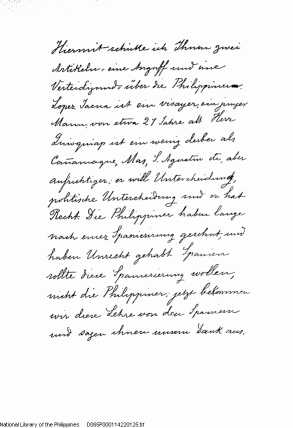 Hiermit schicke ich Ihnen zwei
Artikeln, eine Angriff und eine
Verteidigund, über die Philippinen.
Lopez Jaena ist ein visayer, ein junger
Mann, von etwa 27 Jahre alt. Herr
Quioquiap ist ein wenig derber als
Cañamaque, Mas, S. Agustin etc, aber
aufrichtiger; er will Unterscheidung,
politische Unterscheidung und er hat
Recht. Die Philippiner haben lange
nach einer Spanisierung gesehnt, und
haben Unrecht gehabt. Spanien
sollte diese Spanisierung wollen,
nicht die Philippiner; jetzt bekommen
wir diese Lehre von den Spaniern
und sagen ihnen unsern Dank aus.
National Library of the Philippines D095P000114220125.tif